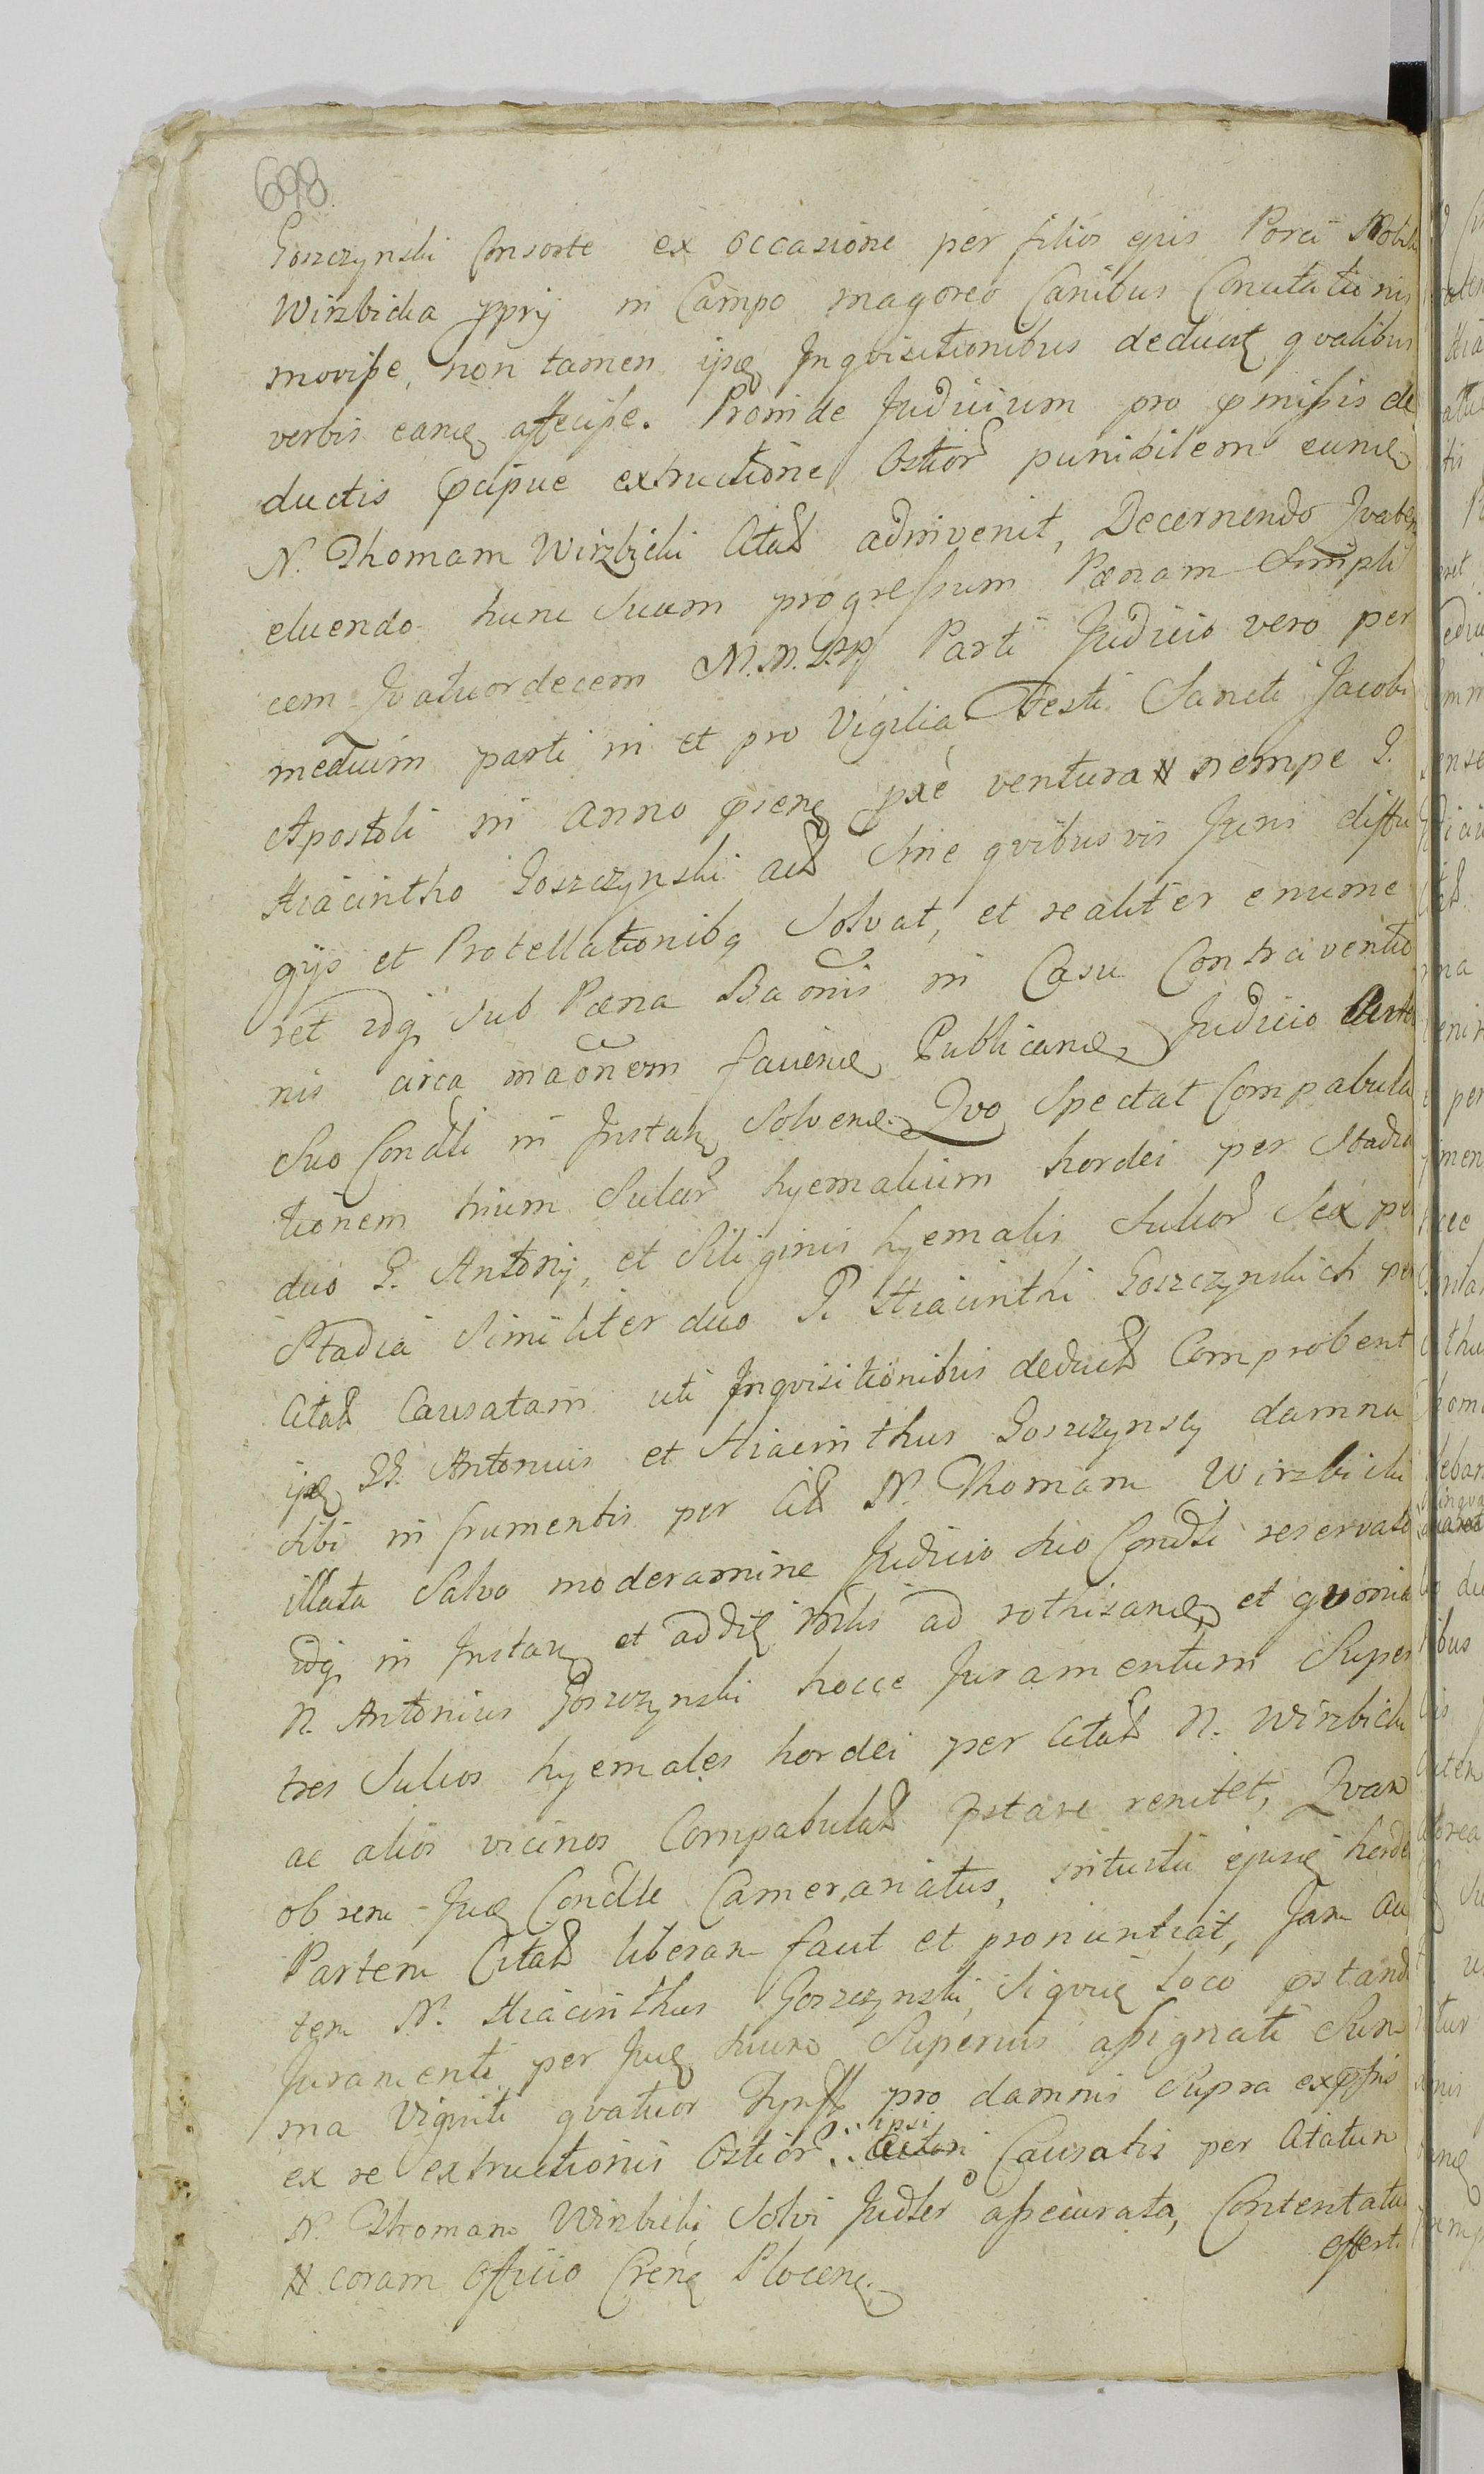 698
Goszczynski Consorte ex occasione per filios ejus Porci Nobili
Wirzbicka pprij in Campo magoreo Canibus Concutationis
movisse, non tamen ipse Inqvisitionibus deducit qvalibus
verbis eand affecisse. Proinde Judicium pro pmissis de
ductis pcipue extructione Ostior punibilem eund
N. Thomam Wirzbicki Citat adinvenit, Decernendo Qvaten
eluendo hunc suum progressum Pœnam Simpli
cem Qvatuordecem M.M.PP Parti Judicio vero per
medium parti in et pro Vigilia Festi Sancti Jacobi
Apostoli in anno psene pxe ventura # nempe G.
Hiacintho Goszczynski act Sine qvibusvis Juris diffu
gijs et Protellationibq Solvat, et realiter enume
ret idq sub Pœna Baonis in Casu Contraventio
nis circa maonem faciend Publicand Judicio
Suo Condli in Instan Solvend. Qvo Spectat Compabula
tionem trium Sulcor hyemalium hordei per Stadia
duo G. Antonij, et Siliginis hyemalis Sulcor Sex per
Stadia Similiter duo G. Hiacinthi Goszczynskich per
Citat Causatam uti Inqvisitionibus deduct Comprobent
ipse GG. Antonius et Hiacinthus Goszczynscy damna
sibi in frumentis per Cit N. Thomam Wirzbicki
illata Salvo moderamine Judicio suo Condli reservato
idq in Instan et addit Mlis ad rothisand, et qvonia
N. Antonius Goszczynski hocce Juramentum Super
tres Sulcos hyemales hordei per Citat N. Wirzbicki
ac alios vicinos Compabulat pstare renitet, Qvare
ob rem Jud Condle Camerariatus, intuitu ejusd hordei
Partem Citat liberam facit et pronuntiat, Jam au
tem N. Hiacinthus Goszczynski, Siqvid loco pstand
Juramenti per Jud huno Superius assignati Sum
ma Viginti qvatuor Tynff pro damnis Supra expssis
ex re extructionis Ostior ipsi Causatis per Citatum
N. Thomam Wirzbicki Solvi Judler assecurata, Contentatu
# coram Officio Crens Plocens. essert